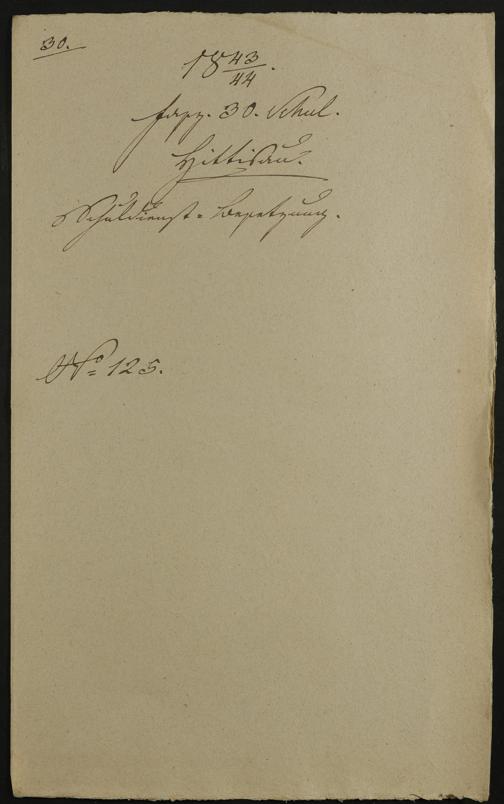 30.
18 43/44.
Fasz. 30. Schul.
Hittisau.
Schuldienst-Besetzung.
No 125.